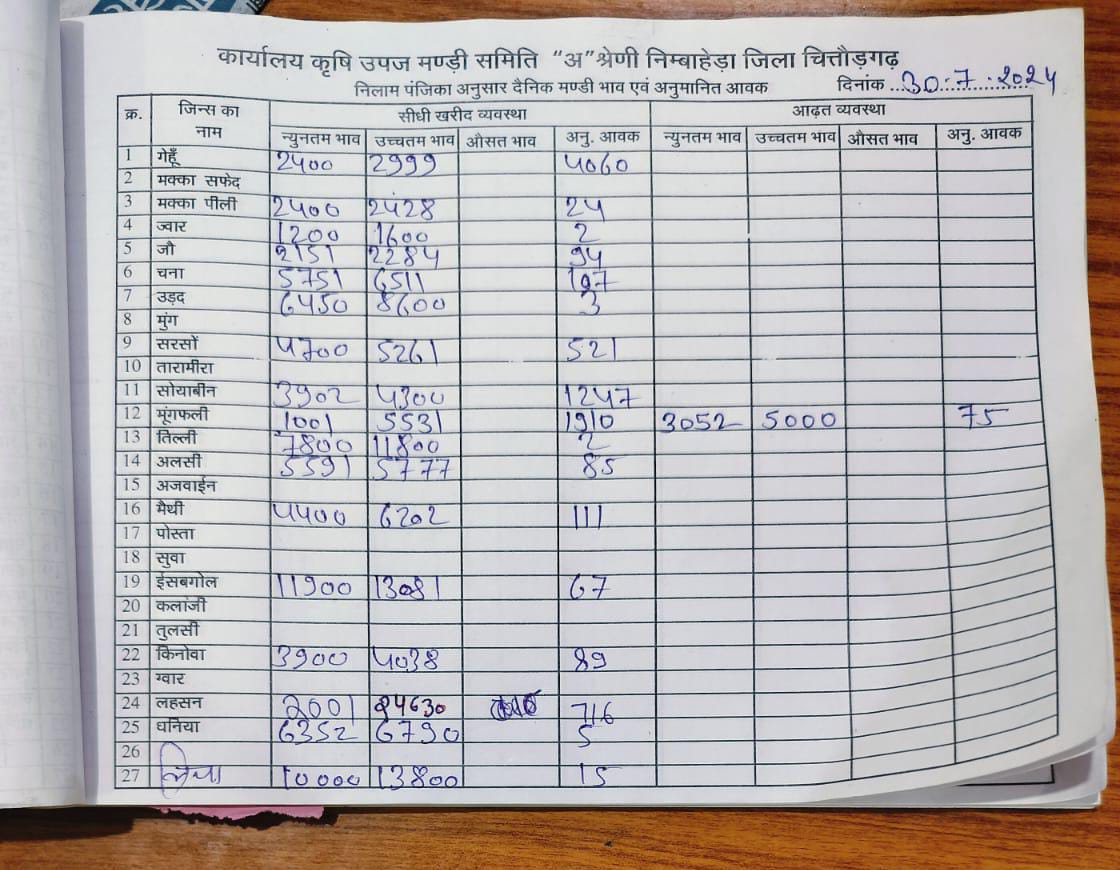 कार्यालय कृषि उपज मण्डी समिति "अ" श्रेणी निम्बाहेड़ा जिला चित्तौड़गढ़
निलाम पंजिका अनुसार दैनिक मण्डी भाव एवं अनुमानित आवक दिनांक 30.7.2024
क्र. जिन्स का नाम सीधी खरीद व्यवस्था आढ़त व्यवस्था
न्युनतम भाव उच्चतम भाव औसत भाव अनु. आवक न्युनतम भाव उच्चतम भाव औसत भाव अनु. आवक
1 गेहूँ 2400 2999 4060
2 मक्का सफेद
3 मक्का पीली 2400 2428 24
4 ज्वार 1200 1600 2
5 जौ 2151 2284 94
6 चना 5751 6511 197
7 उड़द 6450 8600 3
8 मुंग
9 सरसों 4700 5261 521
10 तारामीरा
11 सोयाबीन 3902 4300 1247
12 मूंगफली 1001 5531 1910 3052 5000 75
13 तिल्ली 7800 11800 2
14 अलसी 5591 5777 85
15 अजवाईन
16 मैथी 4400 6202 111
17 पोस्ता
18 सुवा
19 ईसबगोल 11900 13081 67
20 कलांजी
21 तुलसी
22 किनोवा 3900 4038 89
23 ग्वार
24 लहसन 2001 24630 716
25 धनिया 6352 6790 5
26
27 10000 13800 15